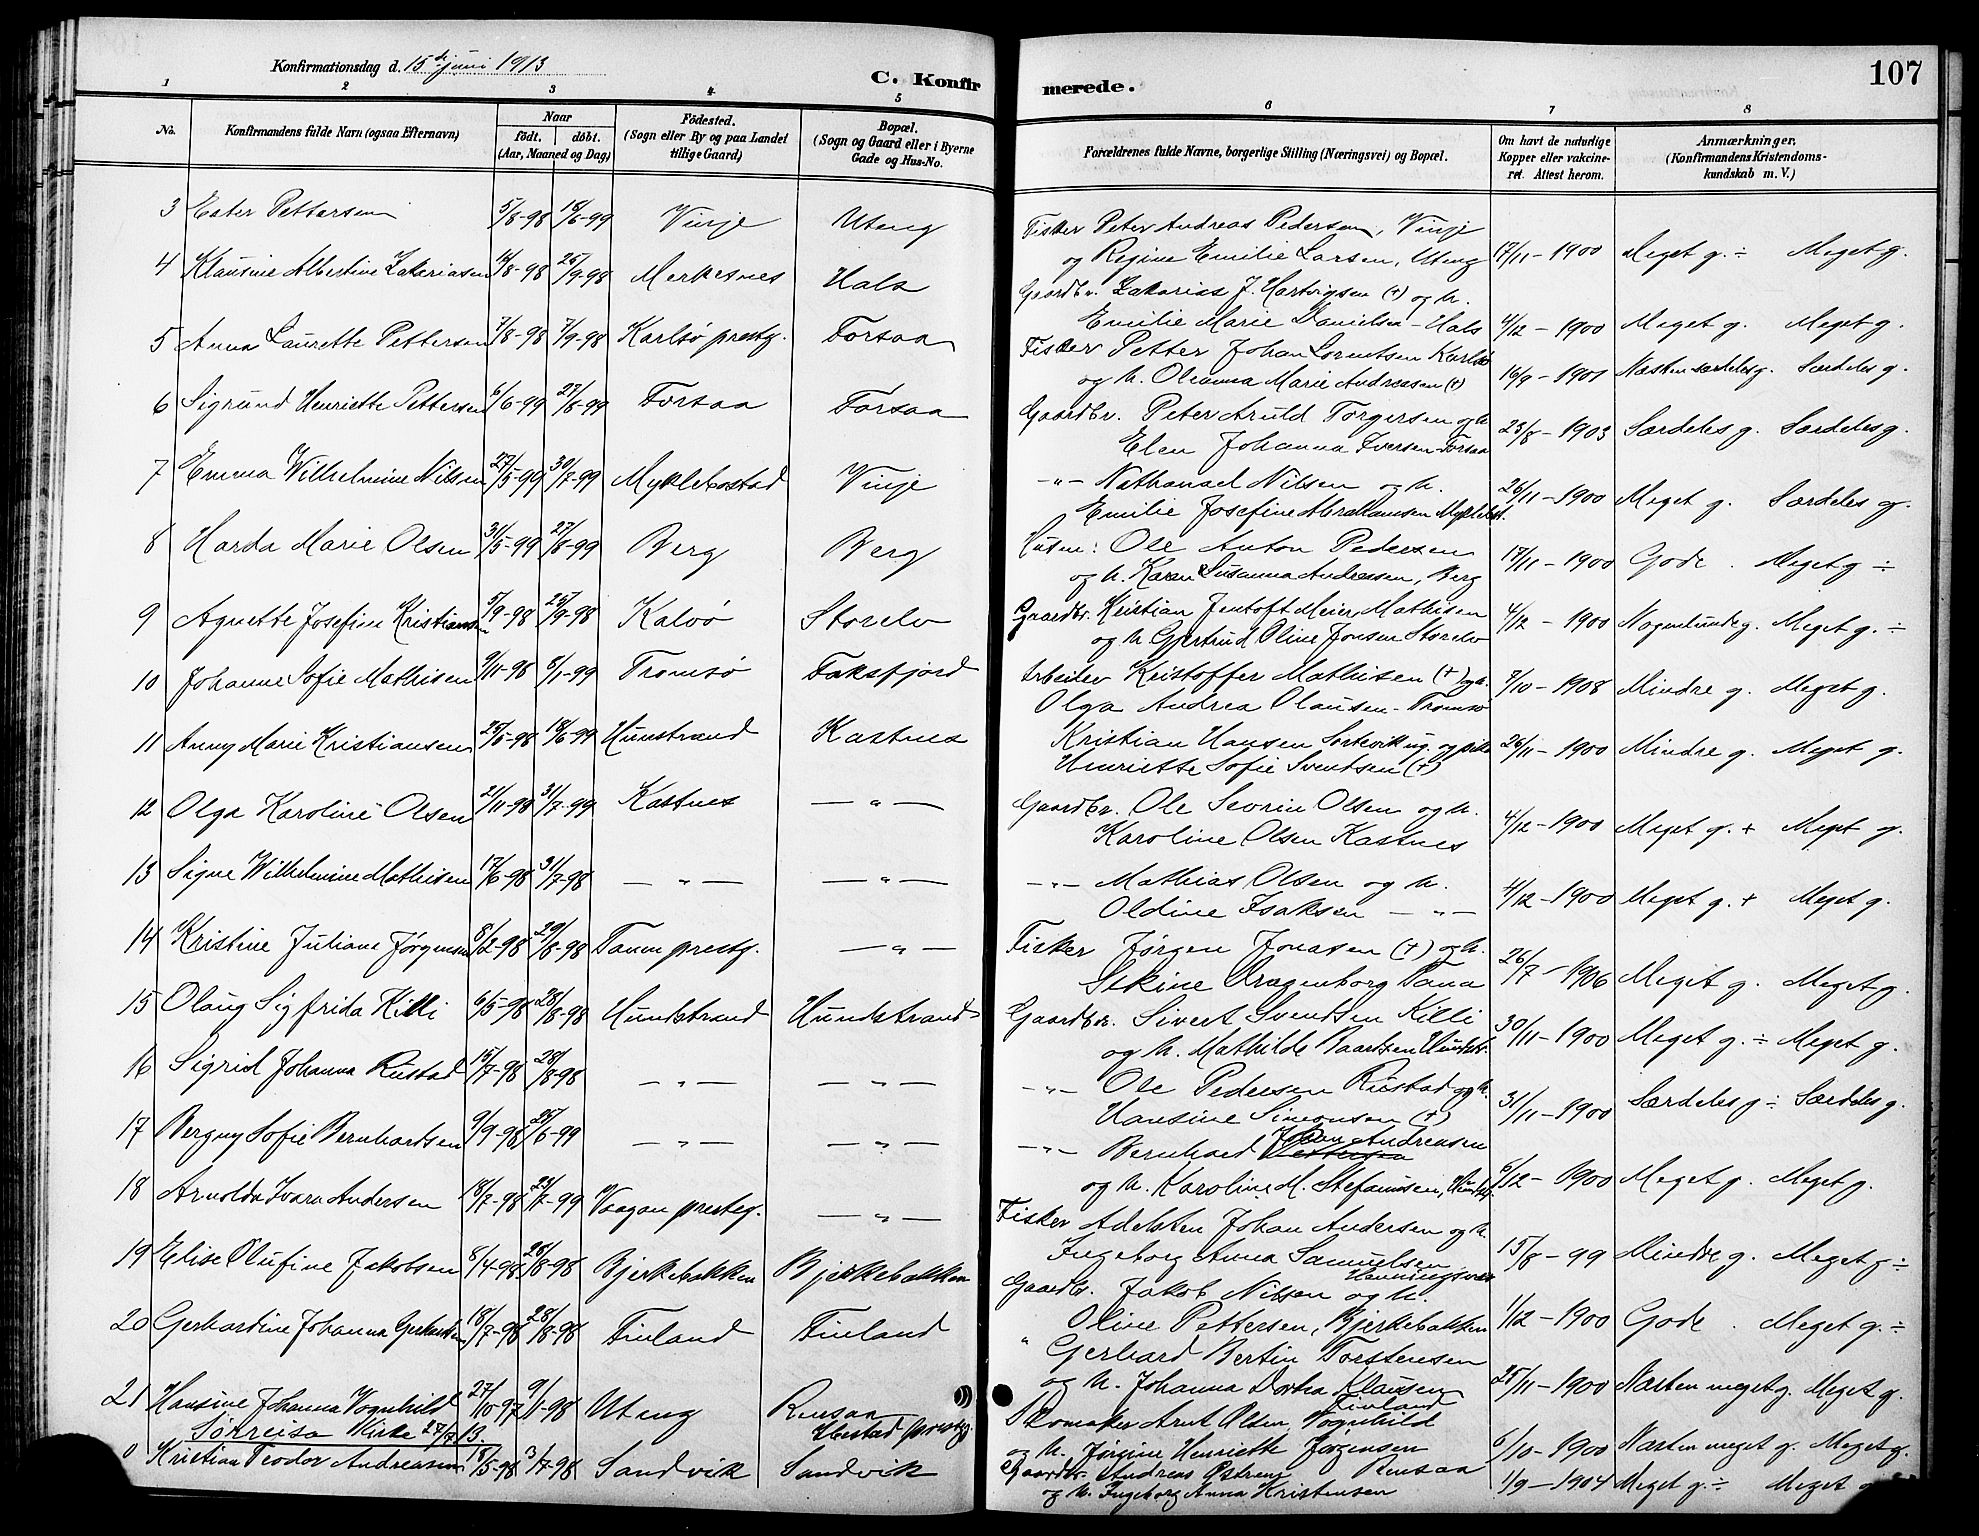 Konfirmationsdag d. 15de juni 1913
C. Konfirmerede.
107
1 2 3 4 5 6 7 8
No.
Konfirmandens fulde Navn (ogsaa Efternavn)
Naar
födt. döbt.
(Aar, Maaned og Dag)
Födested.
(Sogn eller By og paa Landet
tillige Gaard)
Bopæl.
(Sogn og Gaard eller i Byerne
Gade og Hus-No.
Forældrenes fulde Navne, borgerlige Stilling (Næringsvei) og Bopæl.
Om havt de naturlige
Kopper eller vakcine-
ret. Attest herom.
Anmærkninger.
(Konfirmandens Kristendoms-
kundskab m. V.)
3 Ester Pettersen 5/8-98 18/6-99 Vinje Uteng
Fisker Peter Andreas Pedersen, Vinje
og Regine Emilie Larsen, Uteng 17/11-1900 Meget g. ÷ Meget g.
4 Klausine Albertine Zakeriasen 14/8-98 25/9-98 Merkesnes Hals
Gaardbr. Zakarias J. Hartvigsen (+) og h.
Emilie Marie Danielsen - Hals 4/12-1900 Meget g. Meget g.
5 Anna Laurette Pettersen 7/8-98 7/9-98 Karlsø prestg. Forsaa
Fisker Petter Johan Lorentsen Karlsø
og h. Oleanna Marie Andreasen (+) 16/9-1901 Næsten særdeles g. Særdeles g.
6 Sigrund Henriette Pettersen 6/6-99 27/8-99 Forsaa Forsaa
Gaardbr. Peter Aruld Torgersen og h.
Elen Johanna Iversen Forsaa 23/8-1903 Særdeles g. Særdeles g.
7 Emma Wilhelmine Nilsen 27/5-99 30/7-99 Myklebostad Vinje
-"- Nathanael Nilsen og h.
Emilie Josefine Abrahamsen Myklebst. 26/11-1900 Meget g. Særdeles g.
8 Harda Marie Olsen 31/5-99 27/8-99 Berg Berg
Husm: Ole Anton Pedersen
og h. Karen Susanna Andreasen, Berg 17/11-1900 Gode. Meget g ÷
9 Agnette Josefine Kristiansen 5/9-98 25/9-98 Kalvø Storelv
Gaardbr. Kristian Jentoft Meier Mathisen
og h Gjertrud Oline Jonsen Storelv 4/12-1900 Nogenlunde g. Meget g. ÷
10 Johanne Sofie Mathisen 9/10-98 8/1-99 Tromsø Faksfjord
Arbeider Kristoffer Mathisen (+) og h.
Olga Andrea Olausen - Tromsø 7/10-1908 Mindre g. Meget g.
11 Anny Marie Kristiansen 25/5-98 18/6-99 Hunstrand Kastnes
Kristian Hansen Sortevik ug. og pike
Henriette Sofie Svendsen (+) 26/11-1900 Mindre g. Meget g.
12 Olga Karoline Olsen 21/11-98 31/7-99 Kastnes -"-
Gaardbr. Ole Sevrin Olsen og h.
Karoline Olsen Kastnes 4/12-1900 Meget g. + Meget g.
13 Signe Wilhelmine Mathisen 17/6-98 31/7-98 -"- -"-
-"- Mathias Olsen og h.
Oldine Isaksen -"- 4/12-1900 Meget g. + Meget g.
14 Kristine Juliane Jørgensen 8/2-98 29/8-98 Tanen prestg. -"-
Fisker Jørgen Jonasen (+) og h.
Sekine Dragenborg Tana 26/7-1906 Meget g. Meget g.
15 Olaug Sigfrida Killi 6/5-98 28/8-98 Hundstrand Hundstrand
Gaardbr. Sivert Svendsen Killi
og h. Mathilde Baardsen Hundstr. 30/11-1900 Meget g. ÷ Meget g.
16 Sigrid Johanna Rustad 15/7-98 28/8-98 -"- -"-
-"- Ole Pedersen Rustad og h.
Hansine Simonsen (+) 31/11-1900 Særdeles g ÷ Særdeles g.
17 Bergny Sofie Bernhardsen 9/9-98 25/6-99 -"- -"-
-"- Bernhard Johan Andreasen
og h. Karoline M. Stefanusen, Hundstr. 5/12-1900 Meget g. Meget g.
18 Arnolda Ivara Andersen 18/2-98 23/7-99 Vaagan prestg. -"-
Fisker Adelsten Johan Andersen og h.
Ingeborg Anna Samuelsen Henningsvær 15/8-99 Mindre g. Meget g ÷
19 Elise Olufine Jakobsen 8/4-98 28/8-98 Bjerkebakken Bjerkebakken
Gaardbr. Jakob Nilsen og h.
Oline Pettersen, Bjerkebakken 1/12-1900 Gode. Meget g. ÷
20 Gerhardine Johanna Gerhardsen 18/7-98 28/8-98 Finland Finland
" Gerhard Bertin Torstensen
og h. Johanna Dorthea Klausen Finland 25/11-1900 Næsten meget g. Meget g.
21 Hansine Johanna Vognhild 27/10-97 9/1-98 Uteng Rensaa
Ibestad prestg.
Skomaker Arnt Olsen Vognhild
og h. Jørgine Henriette Jørgensen Rensaa 6/10-1900 Næsten meget g. Meget g.
Sørreisa Kirke 27/7 13.
Kristian Teodor Andreasen 18/5-98 3/7-98 Sandvik Sandvik
Gaardbr. Andreas Østreng
og h. Ingeborg Anna Kristensen 1/9-1904 Meget g. ÷ Meget g